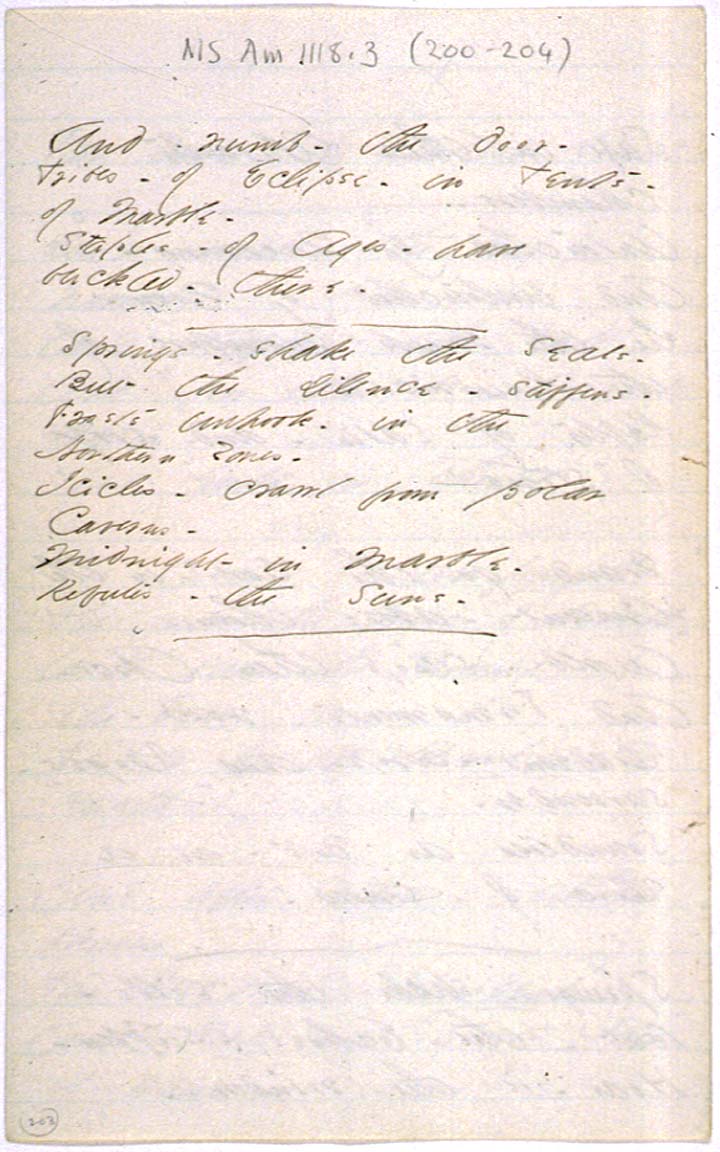 MS Am 1118.3 (200-204)
And - numb - the door -
Tribes - of Eclipse - in Tents -
of Marble -
Staples - of Ages - have
buckled - there -
Springs - shake the Seals -
But - the silence - stiffens -
Frosts unhook - in the
Northern Zones -
Icicles - crawl from polar
Caverns -
Midnight - in Marble -
Refutes - the Suns -
203